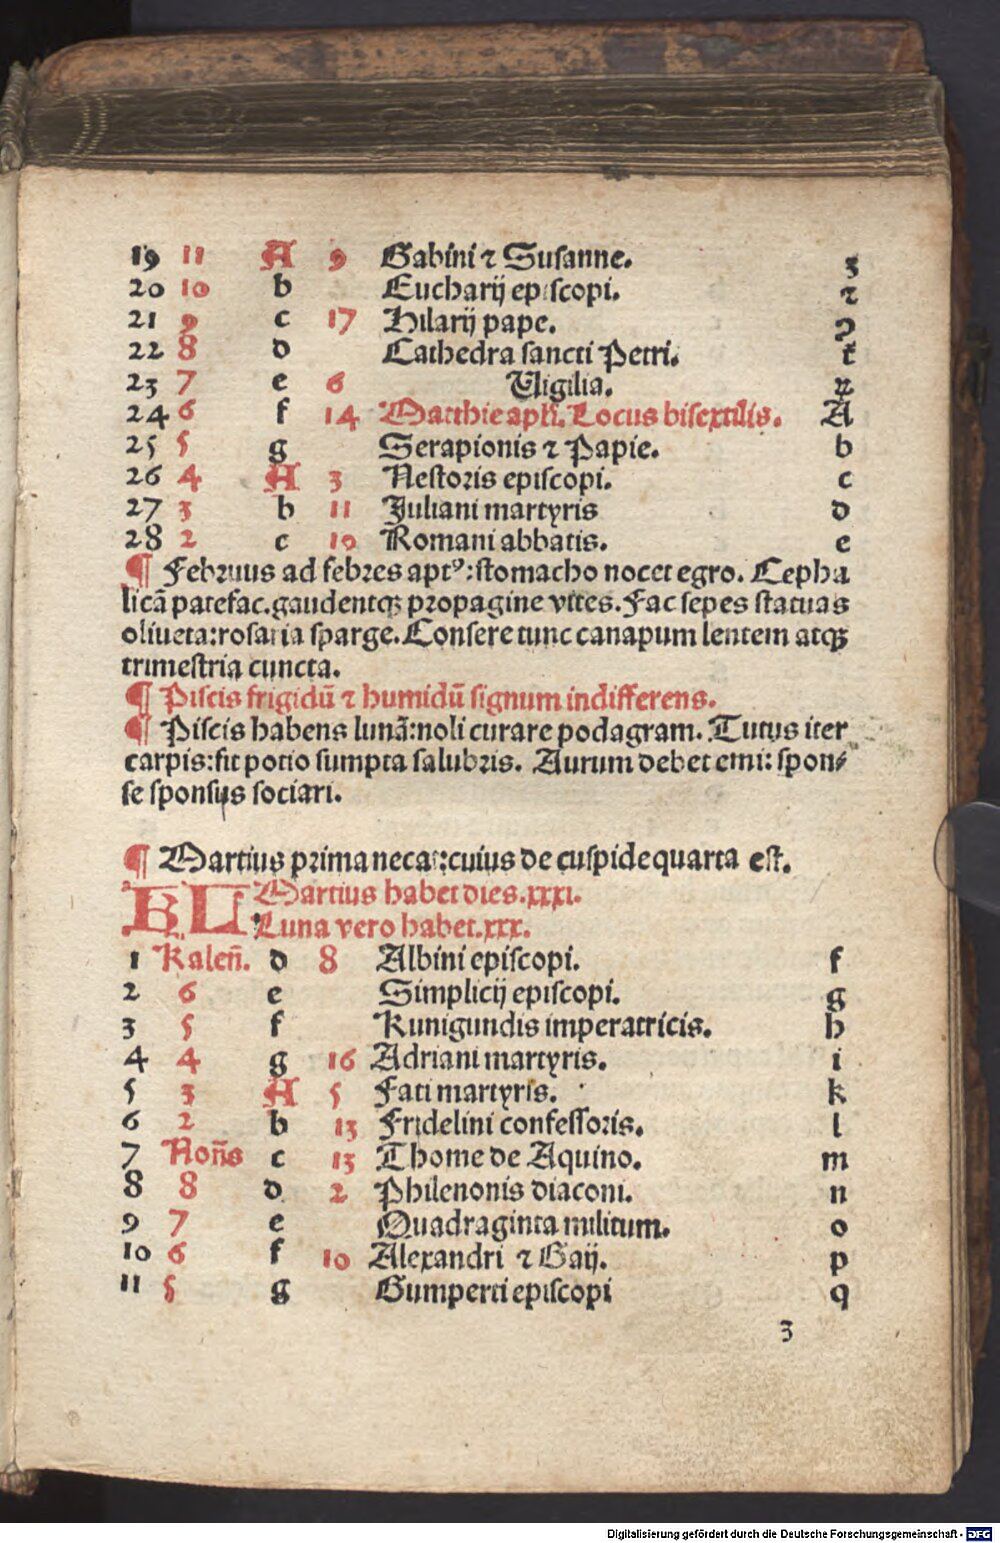 19 11 A 9 Gabini ⁊ Susanne. z
20 10 b Eucharij episcopi. ⁊
21 9 c 17 Hilarij pape. ꝯ
22 8 d Cathedra sancti Petri. t
23 7 e 6 Uigilia. ꝝ
24 6 f 14 Matthie apli. Locus bisextilis. A
25 5 g Serapionis ⁊ Papie. b
26 4 A 3 Nestoris episcopi. c
27 3 b 11 Juliani martyris d
28 2 c 19 Romani abbatis. e
¶ Februus ad febres aptꝰ: stomacho nocet egro. Cepha
licā patefac. gaudentqꝫ propagine vites. Fac sepes statuas
oliueta: rosaria sparge. Consere tunc canapum lentem atqꝫ
trimestria cuncta.
¶ Piscis frigidū ⁊ humidū signum indifferens.
¶ Piscis habens lunā: noli curare podagram. Tutus iter
carpis: fit potio sumpta salubris. Aurum debet emi: spon⸗
se sponsus sociari.
¶ Martius prima necat: cuius de cuspide quarta est.
KL Martius habet dies. xxxi.
Luna vero habet. xxx.
1 Kaleñ. d 8 Albini episcopi. f
2 6 e Simplicij episcopi. g
3 5 f Kunigundis imperatricis. h
4 4 g 16 Adriani martyris. i
5 3 A 5 Fati martyris. k
6 2 b 13 Fridelini confessoris. l
7 Noñs c 13 Thome de Aquino. m
8 8 d 2 Philenonis diaconi. n
9 7 e Quadraginta militum. o
10 6 f 10 Alexandri ⁊ Gaij. p
11 5 g Gumperti episcopi q
3
Digitalisierung gefördert durch die Deutsche Forschungsgemeinschaft - DFG